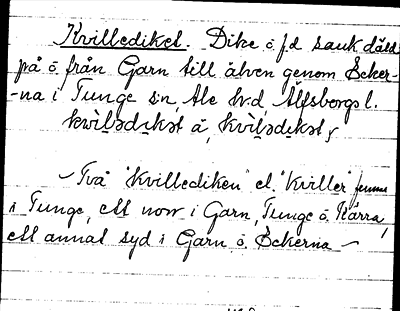 Kvillediket. Dike ö. f.d. sank däld
på ö. från Garn till älven genom Ecker-
-na i Tunge s:n, Ale h:d, Älfsborgs l.
kvìlədikət å, kvìlədikət,
– Två "Kvillediken" el. "Kviller" finnas
i Tunge, ett norr i Garn, Tunge ö. Kärra,
ett annat syd i Garn ö. Eckerna –